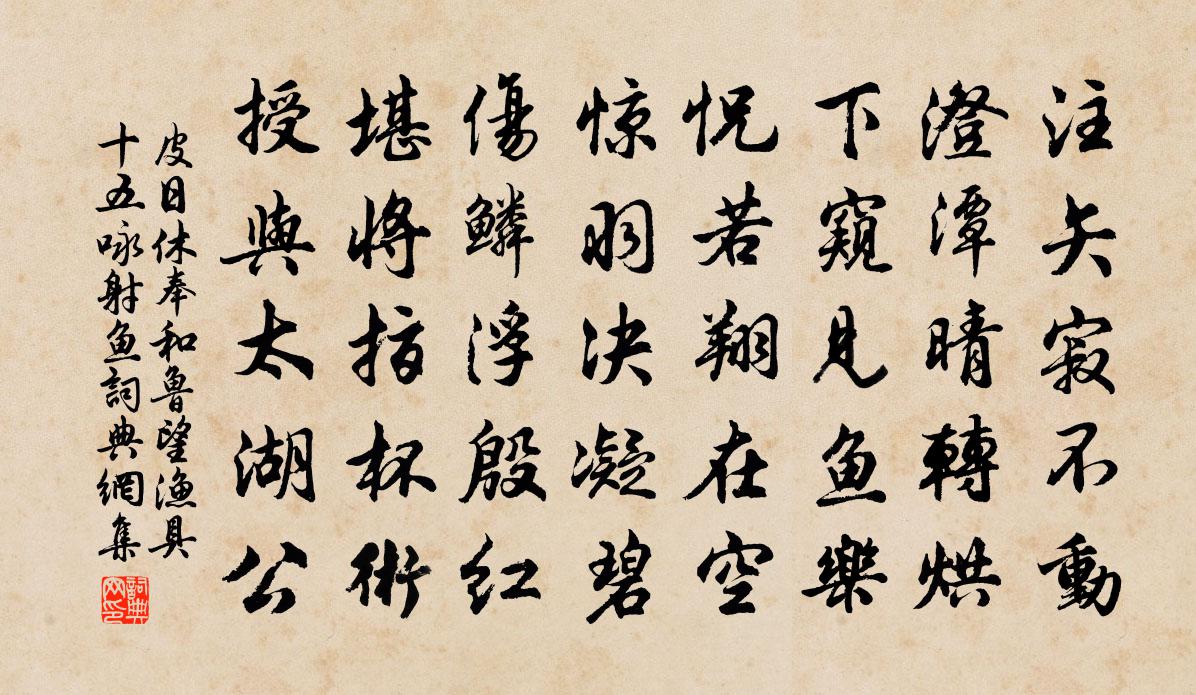 注矢寂不動
澄潭晴轉烘
下窺見鱼樂
怳若翔在空
惊羽决凝碧
傷鱗浮殷红
堪將指杯術
授與太湖公
皮日休奉和鲁望渔具
十五咏射鱼詞典網集
詞典
网印